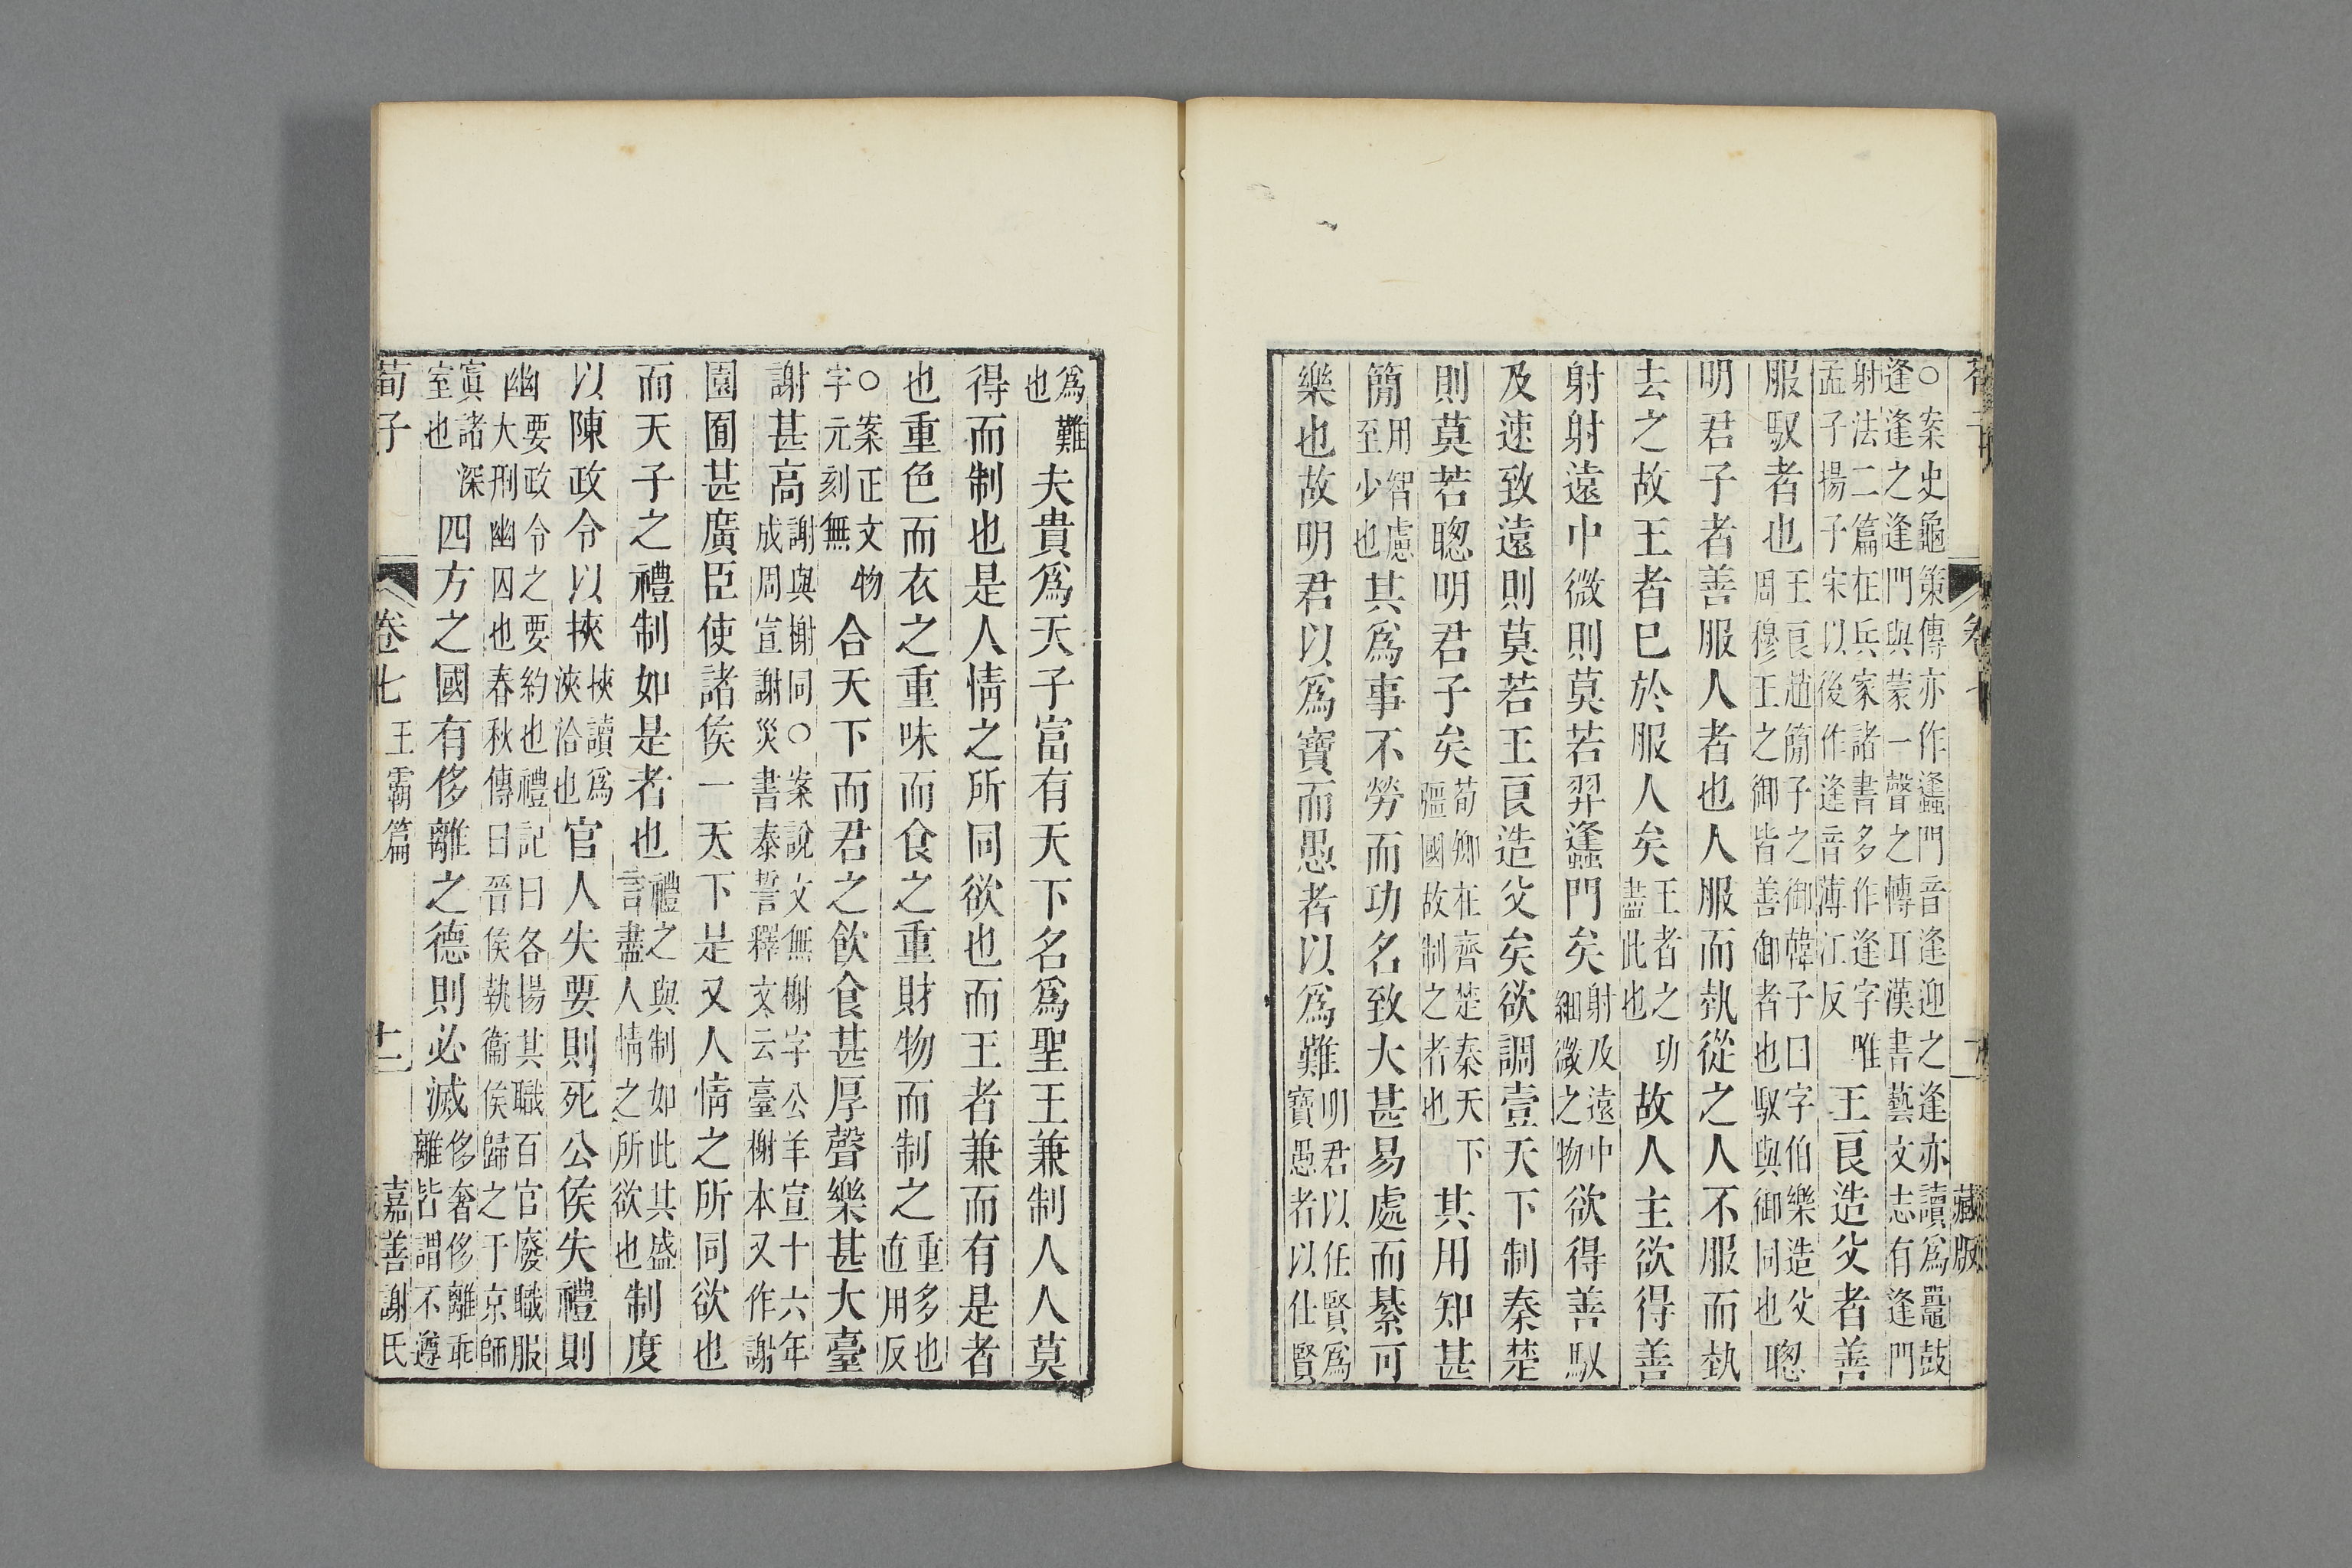 ○案史龜策傳亦作蠭門音逢迎之逢亦讀爲鼉鼓
逢逢之逢逢門與蒙一聲之轉耳漢書藝文志有逢門
射法二篇在兵家諸書多作逢字唯
孟子揚子宋以後作逄音薄江反
王良造父者善
服馭者也
王良趙簡子之御韓子曰字伯樂造父
周穆王之御皆善御者也馭與御同也
聰
明君子者善服人者也人服而埶從之人不服而埶
去之故王者已於服人矣
王者之功
盡此也
故人主欲得善
射射遠中微則莫若羿蠭門矣
射及遠中
細微之物
欲得善馭
及速致遠則莫若王良造父矣欲調壹天下制秦楚
則莫若聰明君子矣
荀卿在齊楚秦天下
彊國故制之者也
其用知甚
簡
用智慮
至少也
其爲事不勞而功名致大甚易處而綦可
樂也故明君以爲寶而愚者以爲難
明君以任賢爲
寶愚者以仕賢
藏版
爲難
也
夫貴爲天子富有天下名爲聖王兼制人人莫
得而制也是人情之所同欲也而王者兼而有是者
也重色而衣之重味而食之重財物而制之
重多也
直用反
○案正文物
字元刻無
合天下而君之飲食甚厚聲樂甚大臺
謝甚高
謝與榭同○案說文無榭字公羊宣十六年
成周宣謝災書泰誓釋文云臺榭本又作謝
園囿甚廣臣使諸侯一天下是又人情之所同欲也
而天子之禮制如是者也
禮之與制如此其盛
言盡人情之所欲也
制度
以陳政令以挾
挾讀爲
浹洽也
官人失要則死公侯失禮則
幽
要政令之要約也禮記曰各揚其職百官廢職服
大刑幽囚也春秋傳曰晉侯執衞侯歸之于京師
寘諸深
室也
四方之國有侈離之德則必滅
侈奢侈離乖
離皆謂不遵
荀子
卷七
王霸篇
十二
嘉善謝氏